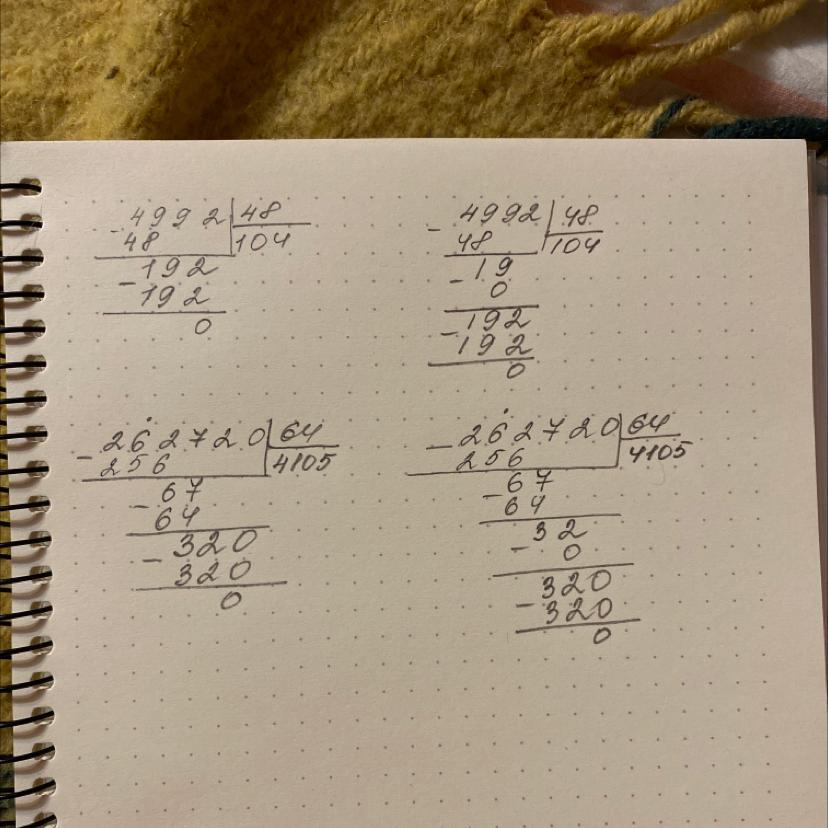 - 4992 | 48
48 | 104
- 192
192
0
- 4992 | 48
48 | 104
- 19
0
- 192
192
0
- 262720 | 64
256 | 4105
- 67
64
- 320
320
0
- 262720 | 64
256 | 4105
- 67
64
- 32
0
- 320
320
0